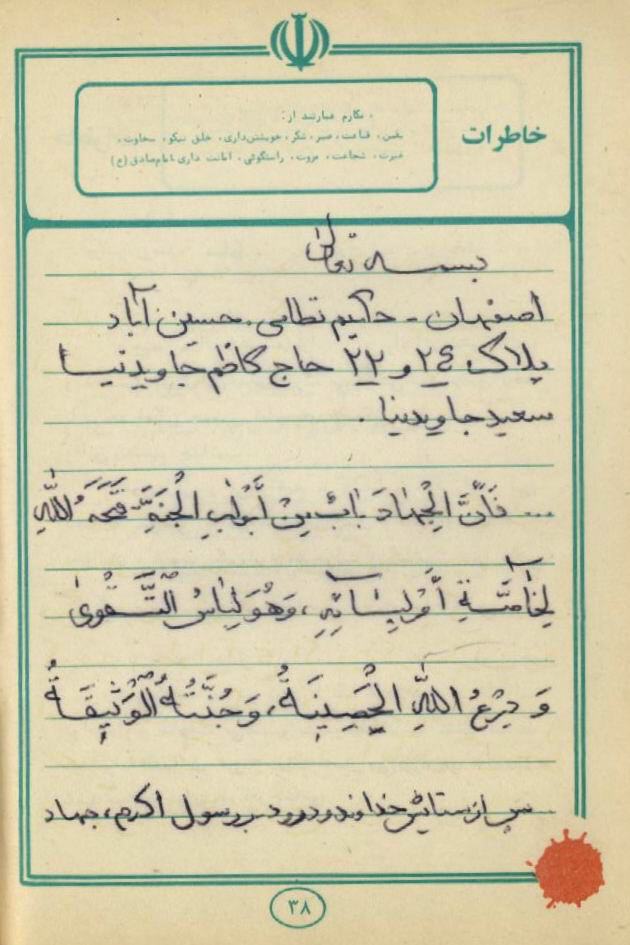 خاطرات
مکارم عبارتند از:
یقین، قناعت، صبر، شکر، خویشتن‌داری، خلق نیکو، سخاوت،
غیرت، شجاعت، مروت، راستگوئی، امانت داری، امام صادق (ع)
بسمه تعالی
اصفهان - حکیم نظامی. حسین آباد
پلاک ۲۴ و ۲۲ حاج کاظم جاویدنیا
سعید جاویدنیا.
... فَاِنَّ الْجِهادَ بابٌ مِنْ أَبْوابِ الْجَنَّةِ فَتَحَهُ اللّٰهُ
لِخاصَّةِ أَوْلِیائِهِ، وَهُوَ لِباسُ التَّقْویٰ
وَ دِرْعُ اللّٰهِ الْحَصِینَةُ، وَ جُنَّتُهُ الْوَثِیقَةُ
پس از ستایش خداوند و درود بر رسول اکرم، جهاد
۳۸